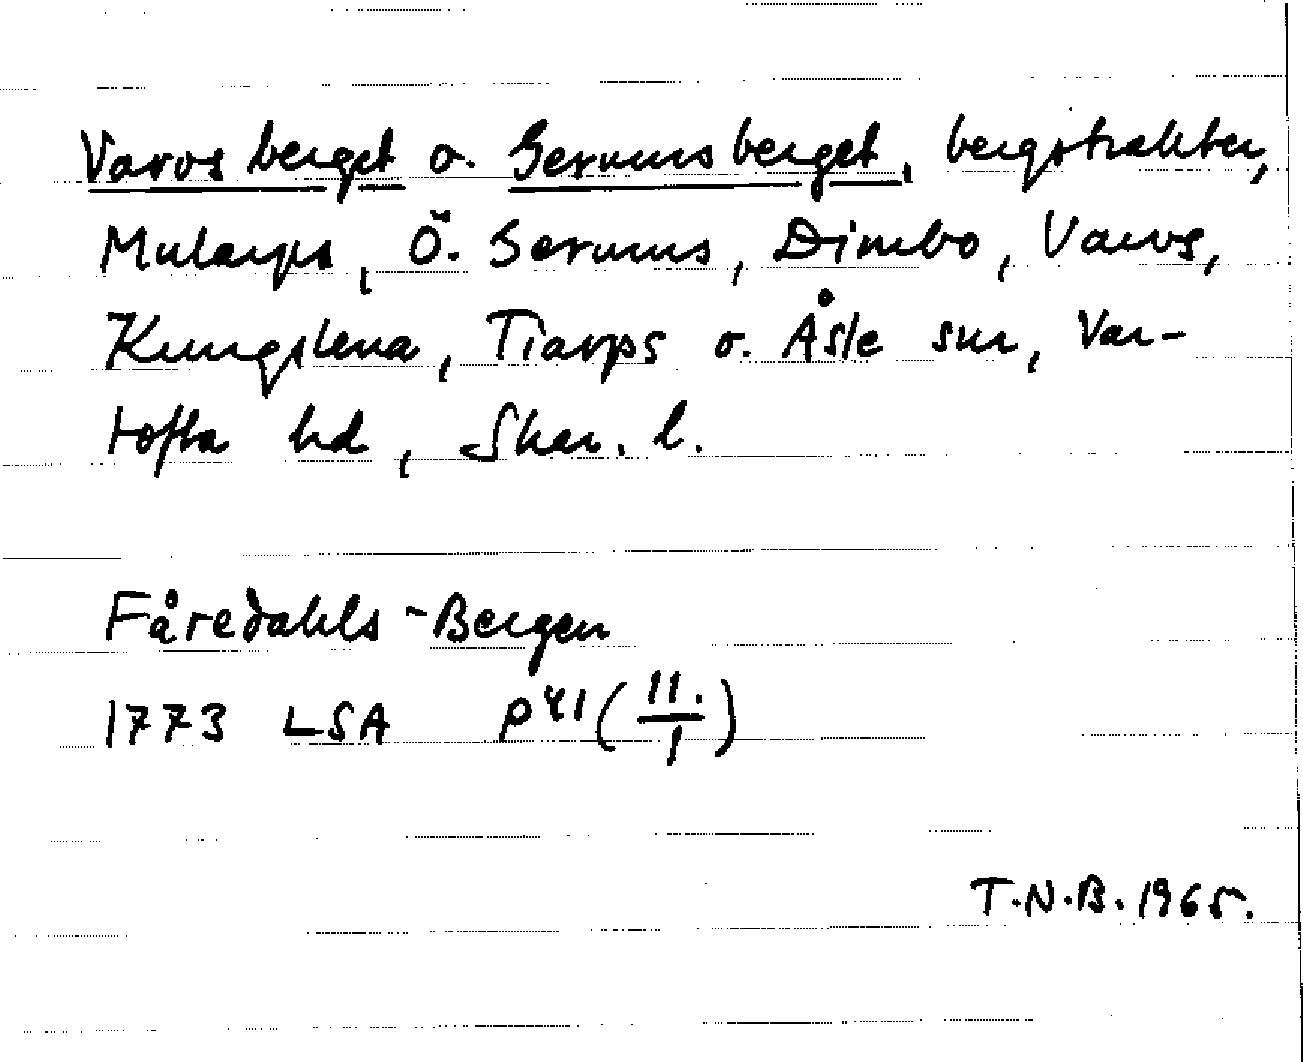 Varvsberget o. Gerumsberget, bergstrakter,
Mularps, Ö. Gerums, Dimbo, Varvs,
Kungslena, Tiarps o. Åsle snr, Var-
tofta hd, Skar. l.
Fåredahls-Bergen
1773 LSA P 41 (11./1)
T.N.B. 1965.